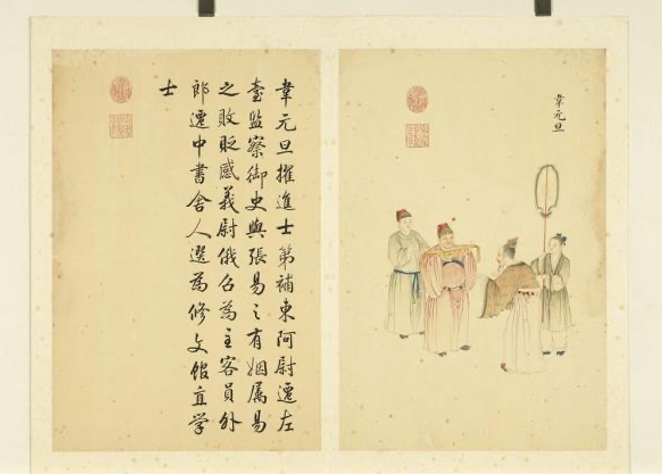 韋元旦
韋元旦擢進士第補東阿尉遷左
臺監察御史與張易之有姻属易
之敗貶感義尉俄召為主客員外
郎遷中書舍人選為修文館直学
士